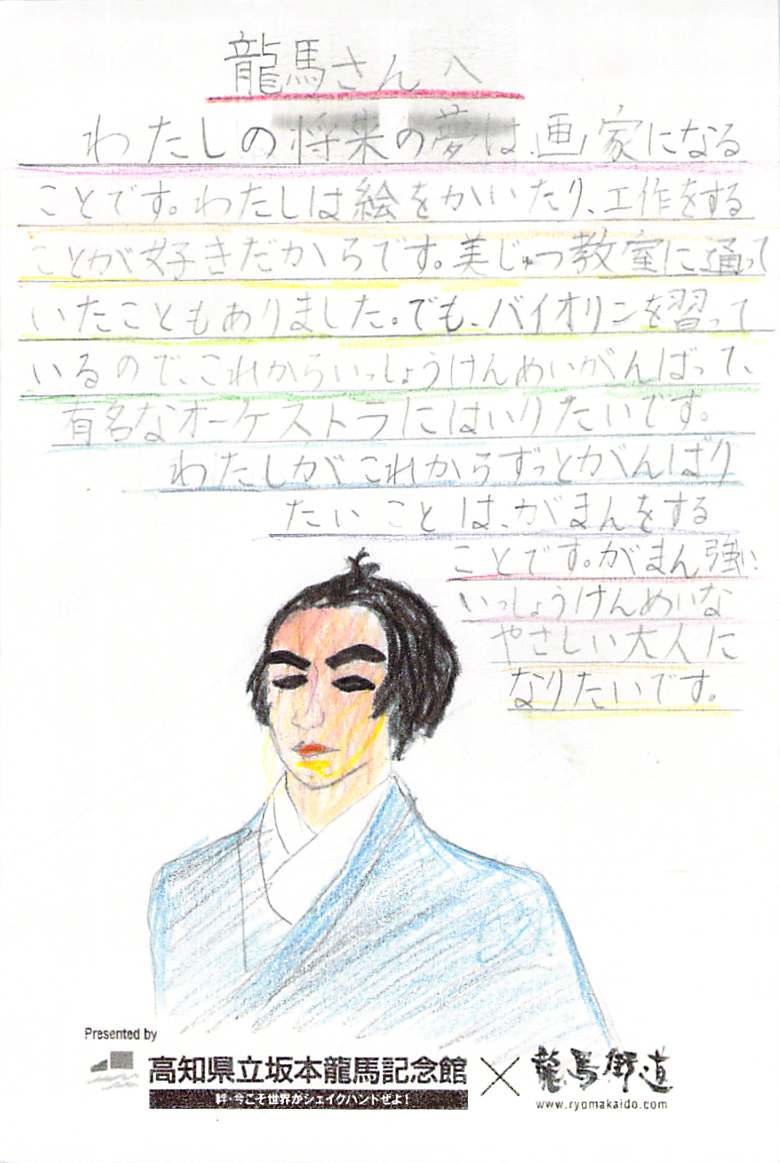 龍馬さんへ
わたしの将来の夢は、画家になる
ことです。わたしは絵をかいたり、工作をする
ことが好きだからです。美じゅつ教室に通って
いたこともありました。でも、バイオリンを習って
いるので、これからいっしょうけんめいがんばって、
有名なオーケストラにはいりたいです。
わたしがこれからずっとがんばり
たいことは、がまんをする
ことです。がまん強い
いっしょうけんめいな
やさしい大人に
なりたいです。
Presented by
高知県立坂本龍馬記念館×龍馬街道
絆・今こそ世界がシェイクハンドぜよ!
www.ryomakaido.com